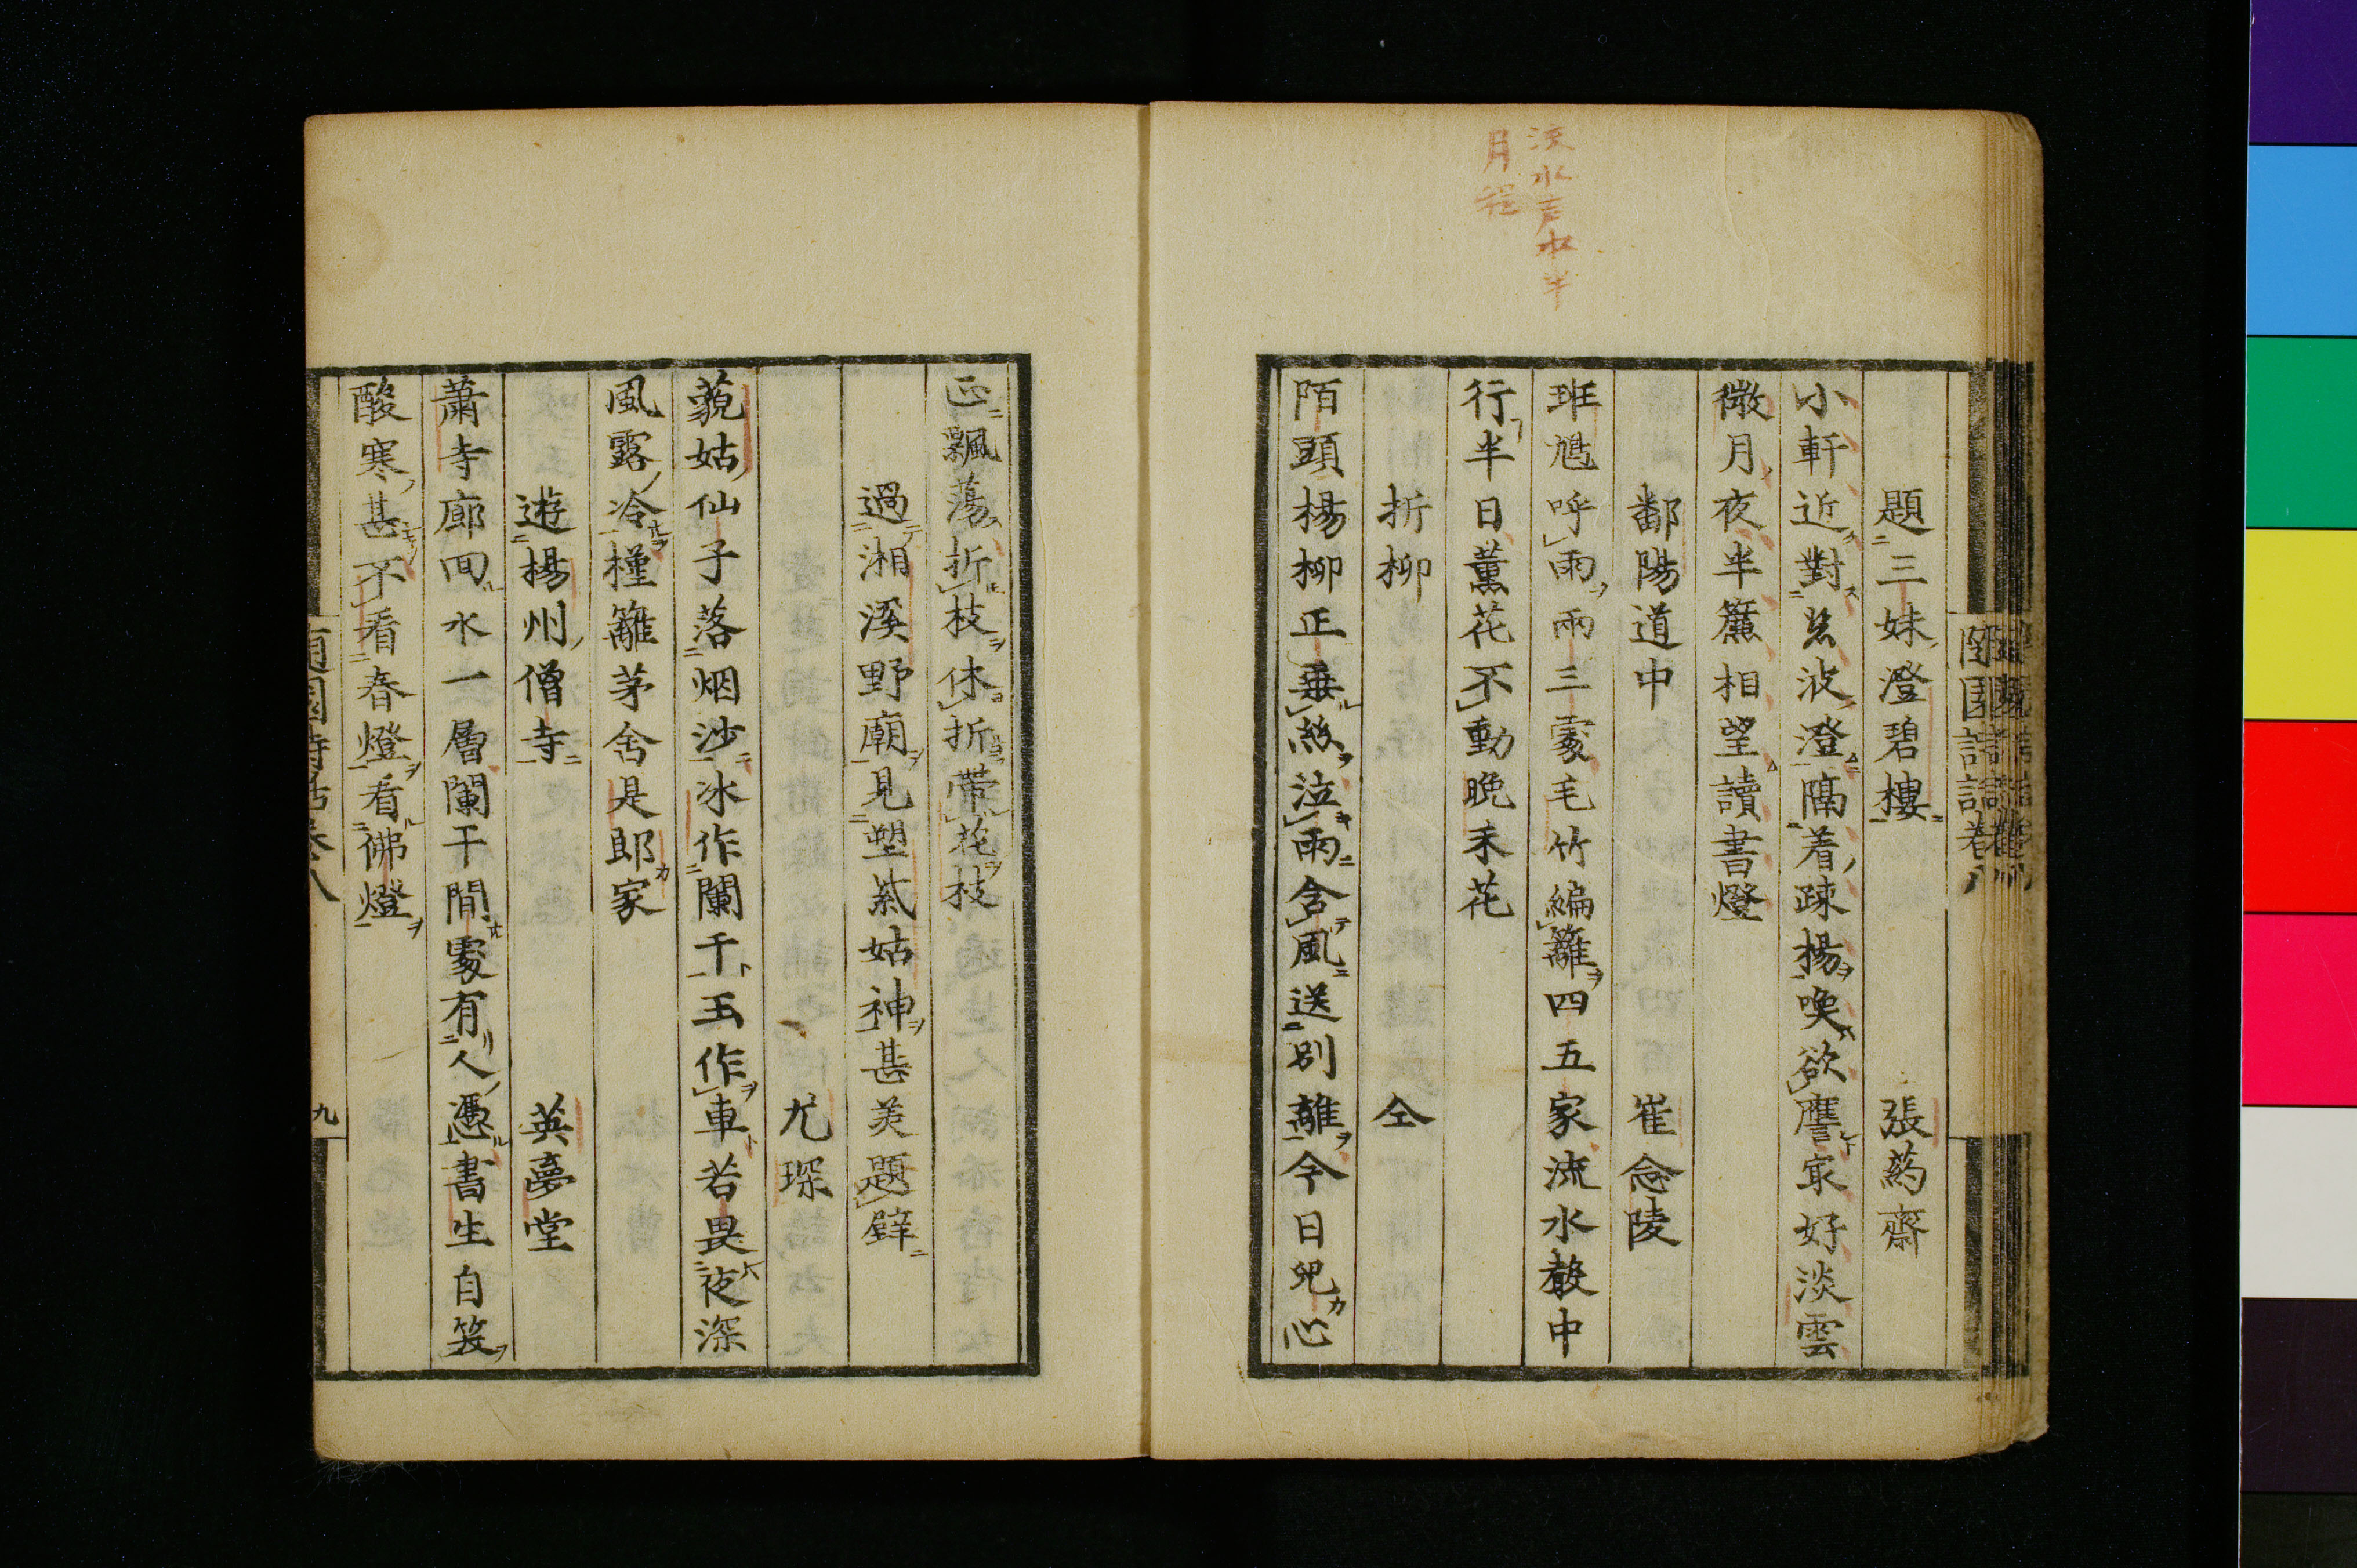 題三妹澄碧樓　張葯齋
小軒近對㐫波澄隔着疎楊喚欲譍冣好淡雲
微月夜半簾相望讀書燈
鄱陽道中　崔念陵
班鳩呼雨兩三處毛竹編籬四五家流水數中
行半日薫花不動晚禾花
折柳　仝
陌頭楊柳正垂絲泣雨含風送别離今日兒心
正飄蕩折枝休折帶花枝
過湘溪野廟見塑紫姑神甚美題壁
尤琛
藐姑仙子落烟沙冰作闌干玉作車若畏夜深
風露冷槿籬茅舍是郎家
遊楊州僧寺　英夢堂
蕭寺廊回水一層闌干間處有人憑書生自笑
酸寒甚不看春燈看佛燈
隨園詩話卷八
九